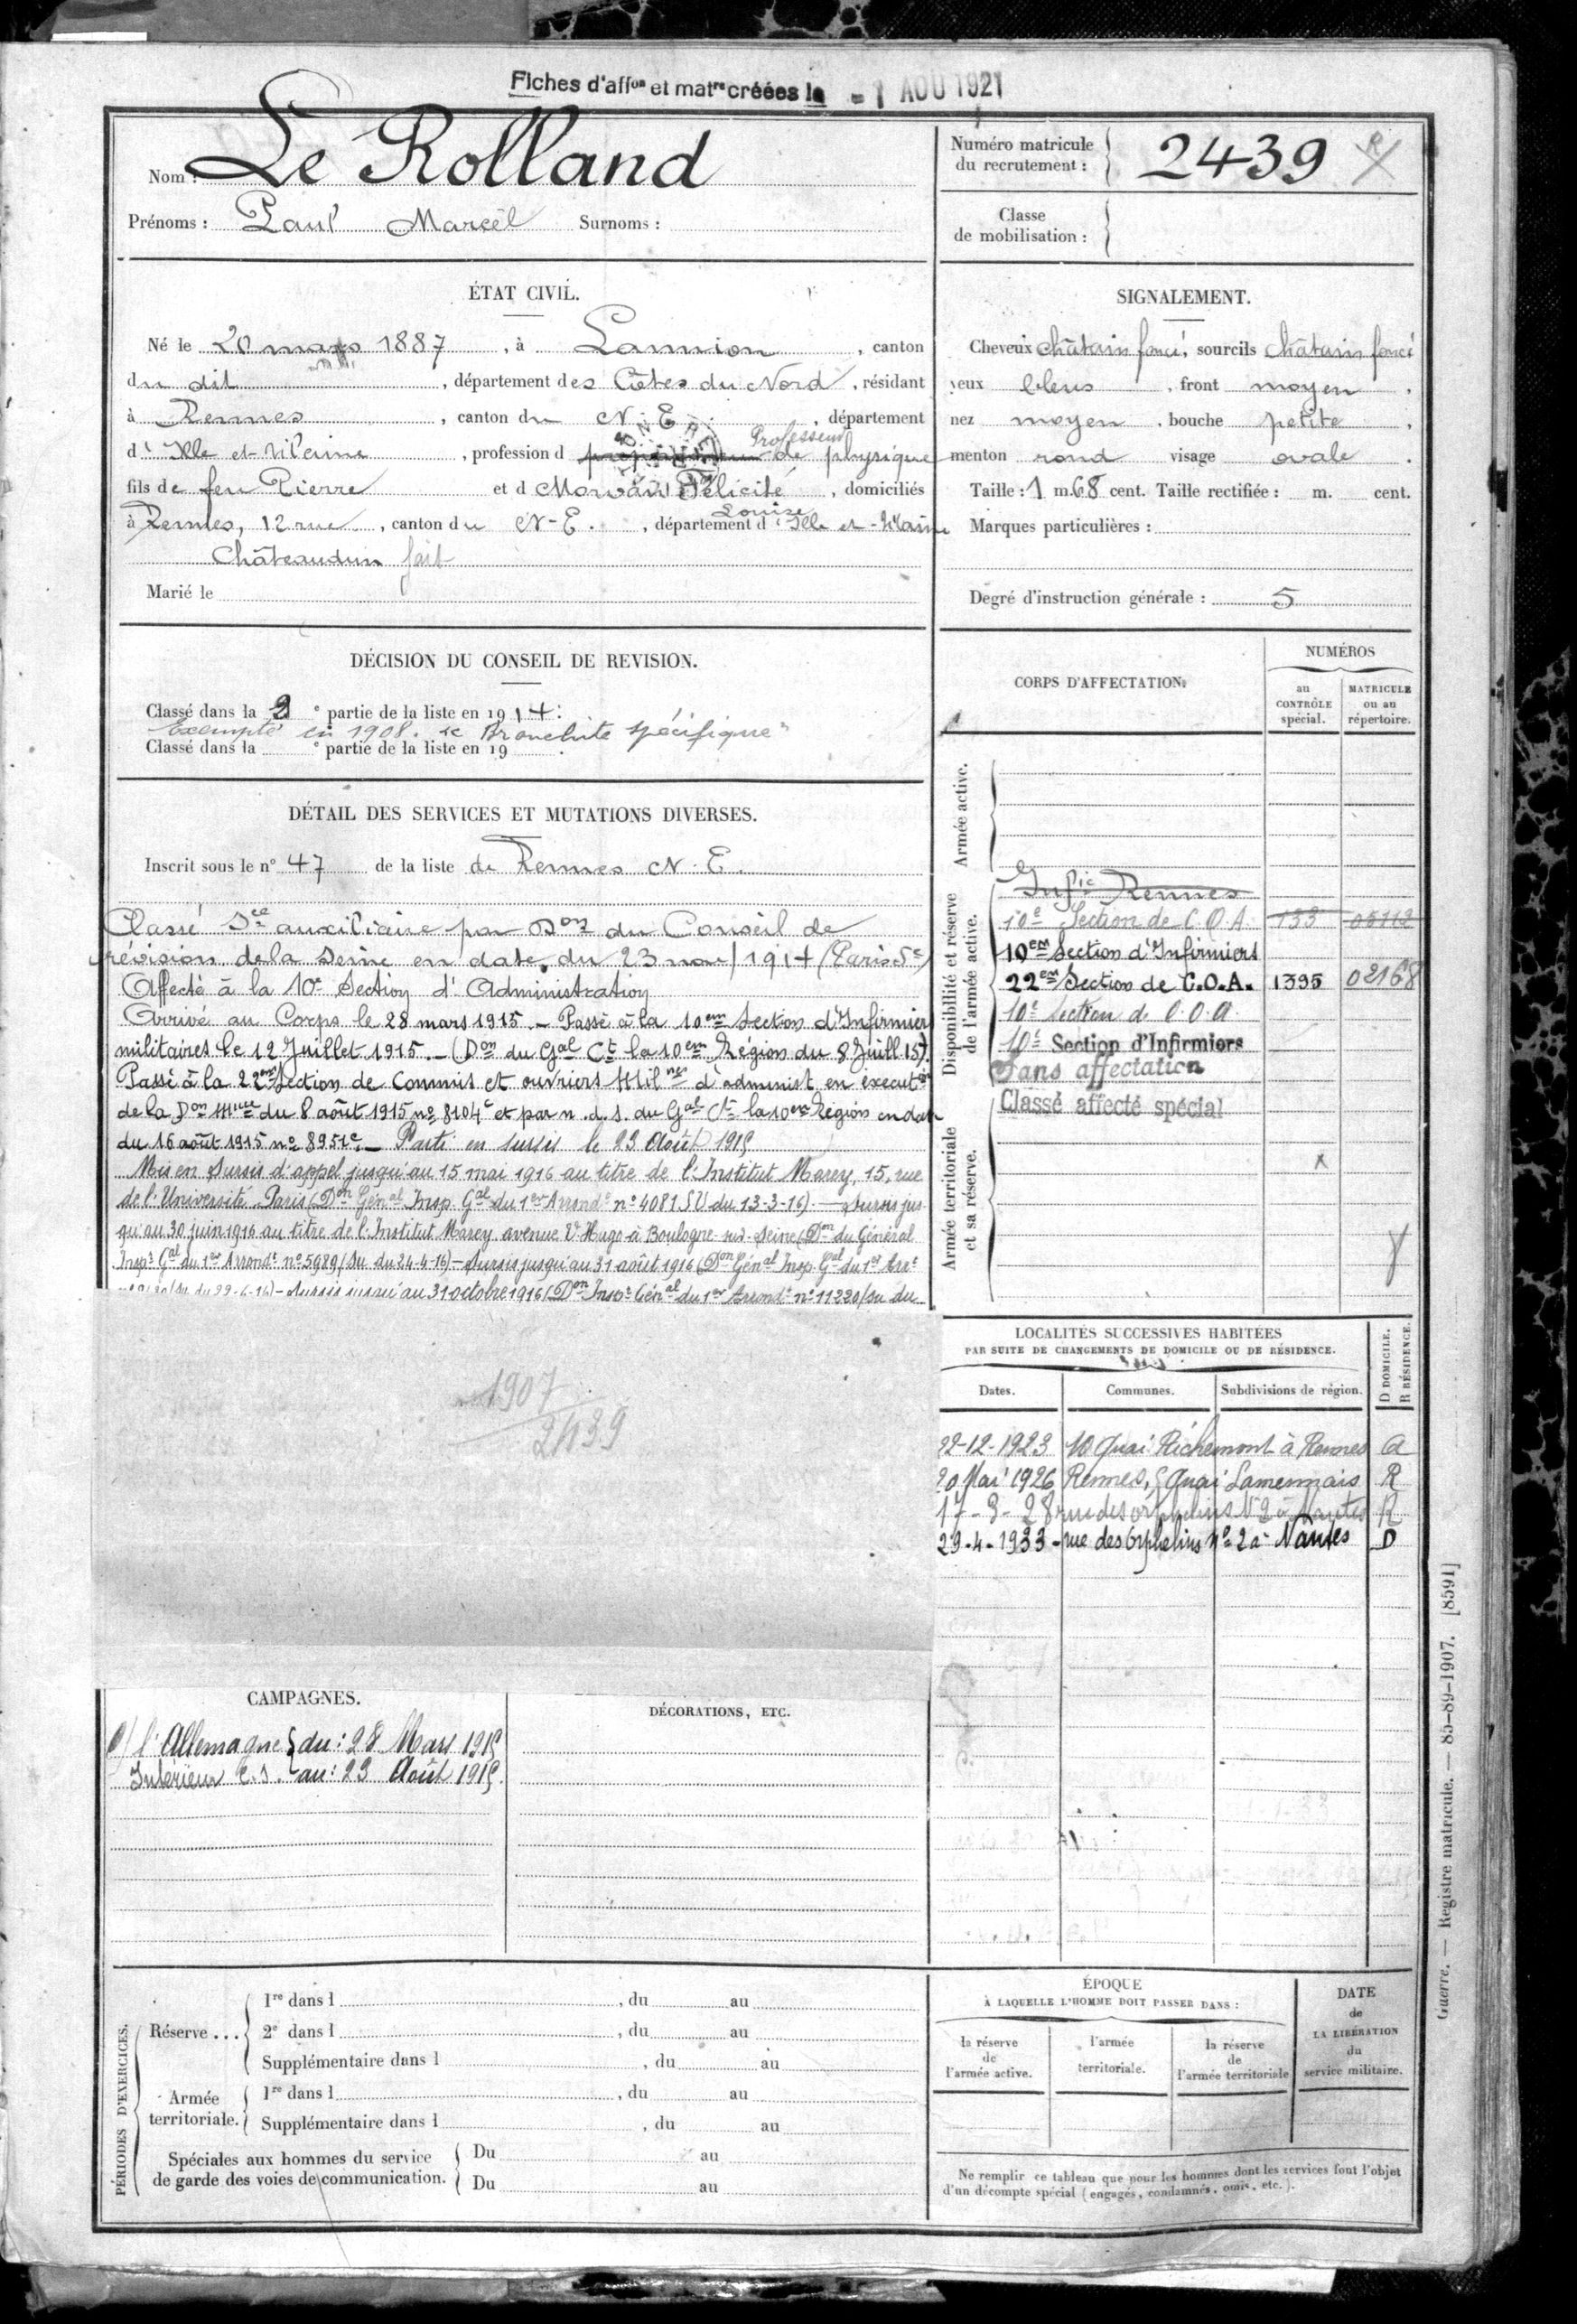 Fiches d'affon et matre créées le - 1 AOU 1921
Nom : Le Rolland
Prénoms : Paul Marcel Surnoms :
Numéro matricule
du recrutement :
2439
R
Classe
de mobilisation :
ÉTAT CIVIL.
Né le 20 mars 1887, à Lannion, canton
du dit, département des Côtes du Nord, résidant
à Rennes, canton du N. E., département
Professeur
d'Ille et Vilaine, profession d de physique
fils de feu Pierre et d Morvan Félicité, domiciliés
Louise
à Rennes, 12 rue, canton du N-E., département d'Ille et-Vilaine
Châteaudun fait
Marié le
SIGNALEMENT.
Cheveux châtain foncé, sourcils châtain foncé
yeux bleus, front moyen,
nez moyen, bouche petite,
menton rond visage ovale.
Taille : 1 m. 68 cent. Taille rectifiée : m. cent.
Marques particulières :
Degré d'instruction générale : 5
DÉCISION DU CONSEIL DE REVISION.
Classé dans la 2e partie de la liste en 1914 :
Exempté en 1908. "Bronchite spécifique"
Classé dans la e partie de la liste en 19 .
DÉTAIL DES SERVICES ET MUTATIONS DIVERSES.
Inscrit sous le n° 47 de la liste de Rennes N. E.
Classé Sce auxiliaire par Don du Conseil de
révision de la Seine en date du 23 nov 1914 (Paris 5e)
Affecté à la 10e Section d'Administration
Arrivé au Corps le 28 mars 1915. - Passé à la 10em Section d'Infirmiers
militaires le 12 Juillet 1915. - (Don du Gal Ct la 10em Région du 8 Juill 15).
Passé à la 22eme Section de Commis et ouvriers Milres d'administ. en execut on
de la Don Mlle du 8 août 1915 no 8104c et par n.d.s. du Gal Ct la 10em Région en date
du 16 août 1915 no 8951c. - Parti en sursis le 23 Août 1915
Mis en Sursis d'appel jusqu'au 15 mai 1916 au titre de l'Institut Marey, 15, rue
de l'Université. Paris (Don Génal Insp. Gal du 1er Arrondt n° 4081.SU du 13-3-16). - Sursis jus-
qu'au 30 juin 1916 au titre de l'Institut Marey avenue V. Hugo à Boulogne-sur-Seine (Don du Général
Inspr Gal du 1er Arrondt n° 5989/Su du 24-4-16) - Sursis jusqu'au 31 août 1916 (Don Génal Insp. Gal du 1er Arrt
/Su du 22-6-16) - Sursis jusqu'au 31 octobre 1916 (Don Inspr Génal du 1er Arrondt n° 11220/Su du
1907
2439
CORPS D'AFFECTATION.
NUMÉROS
au
CONTRÔLE
spécial.
MATRICULE
ou au
répertoire.
Armée active.
Disponibilité et réserve
de l'armée active.
Infie Rennes
10e Section de C.O.A. 133 05112
10em Section d'Infirmiers
22em Section de C.O.A. 1395 02168
10e Section d C.O.A.
10e Section d'Infirmiers
Sans affectation
Classé affecté spécial
Armée territoriale
et sa réserve.
LOCALITÉS SUCCESSIVES HABITÉES
PAR SUITE DE CHANGEMENTS DE DOMICILE OU DE RÉSIDENCE.
Dates. Communes. Subdivisions de région.
D DOMICILE.
R RÉSIDENCE.
22-12-1923 10 Quai Richemont à Rennes
20 Mai 1926 Rennes, 5 Quai Lamennais R
17-9-28 rue des orphelins N° 2 à Nantes R
29-4-1933 - rue des Orphelins n° 2 à Nantes D
CAMPAGNES.
C/ l'Allemagne du : 28 Mars 1915
Intérieur C.S. au : 23 Août 1915.
DÉCORATIONS, ETC.
PÉRIODES D'EXERCICES.
Réserve ...
1re dans l , du au
2e dans l , du au
Supplémentaire dans l , du au
Armée
territoriale.
1re dans l , du au
Supplémentaire dans l , du au
Spéciales aux hommes du service
de garde des voies de communication.
Du au
Du au
ÉPOQUE
À LAQUELLE L'HOMME DOIT PASSER DANS :
la réserve
de
l'armée active.
l'armée
territoriale.
la réserve
de
l'armée territoriale
DATE
de
LA LIBÉRATION
du
service militaire.
Ne remplir ce tableau que pour les hommes dont les services font l'objet
d'un décompte spécial (engagés, condamnés, omis, etc.).
Guerre. — Registre matricule. — 85-89-1907. [8591]